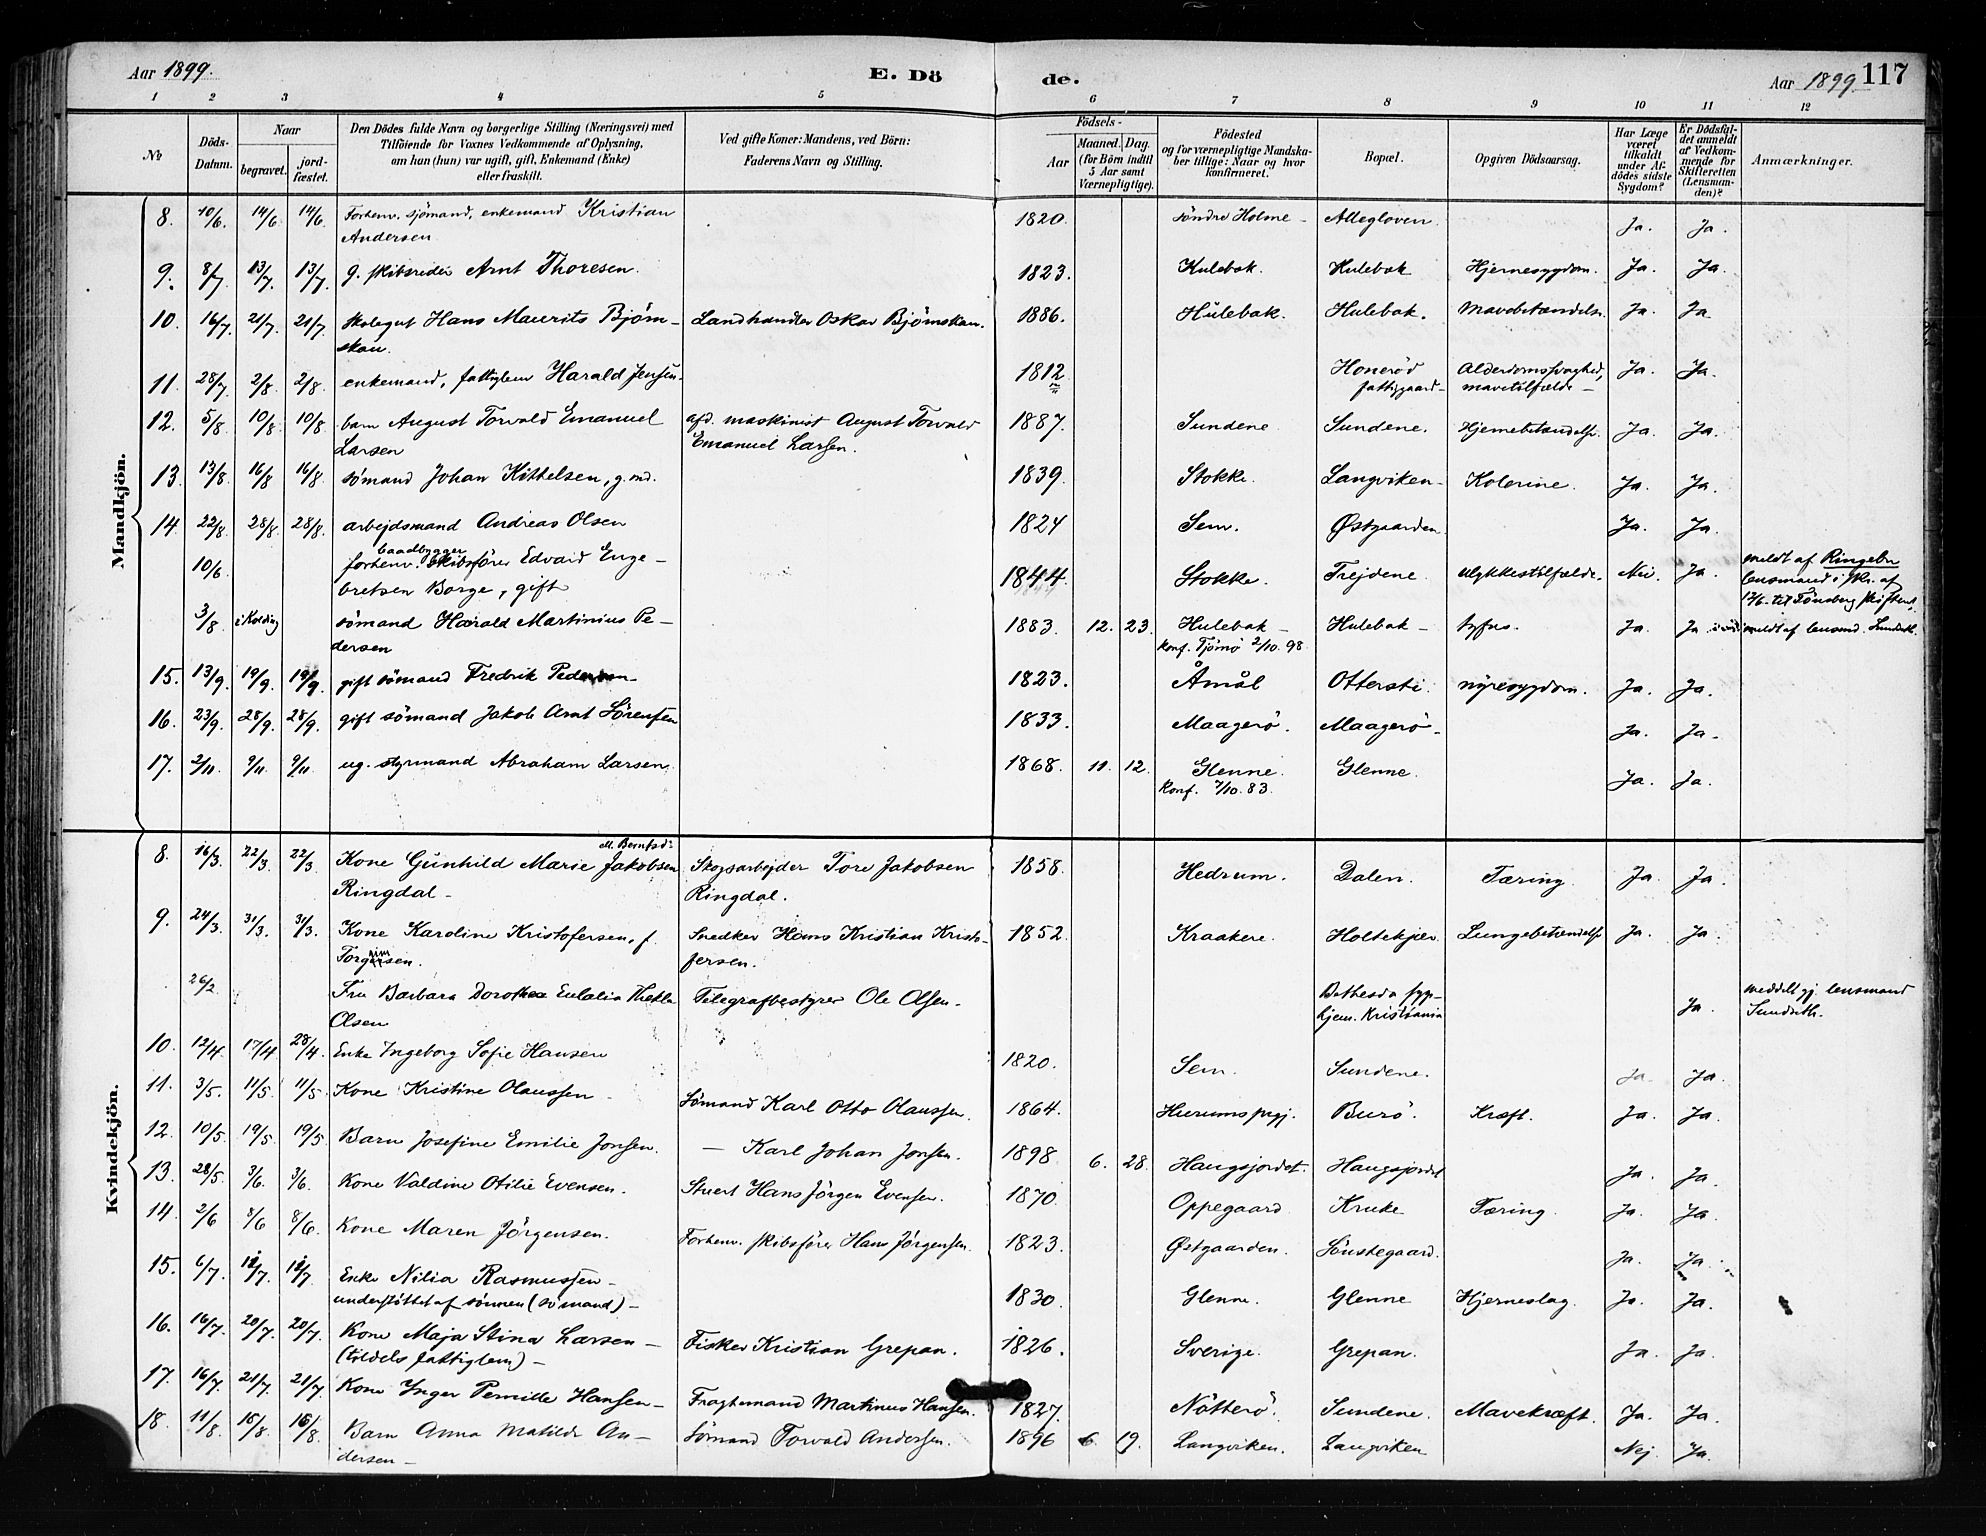 Aar 1899. E. Dö de. Aar 1899. 117
1 2 3 4 5 6 7 8 9 10 11 12
№ Döds-Datum. Naar begravet. jordfæstet. Den Dödes fulde Navn og borgerlige Stilling (Næringsvei) med Tilföiende for Voxnes Vedkommende af Oplysning, om han (hun) var ugift, gift, Enkemand (Enke) eller fraskilt. Ved gifte Koner: Mandens, ved Börn: Faderens Navn og Stilling. Födsels- Aar Maaned. Dag. (for Börn indtil 5 Aar samt Værnepligtige). Födested og for værnepligtige Mandskaber tillige: Naar og hvor konfirmeret. Bopæl. Opgiven Dödsaarsag. Har Læge været tilkaldt under Afdödes sidste Sygdom? Er Dödsfaldet anmeldt af Vedkommende for Skifteretten (Lensmanden)? Anmærkninger.
Mandkjön.
8. 10/6. 14/6 14/6. Forhenv. sjömand, enkemand Kristian Andersen 1820. söndre Holme - Allegloven. Ja. Ja.
9. 8/7. 13/7. 13/7. g. skibsreder Arnt Thoresen. 1823. Hulebak. Hulebak Hjernesygdom. Ja. Ja.
10. 16/7. 21/7. 21/7. Skolegut Hans Maurits Björn-skau. Landhandler Oskar Björnskau. 1886. Hulebak. Hulebak. Mavebetændelse. Ja. Ja
11. 28/7. 2/8. 2/8. enkemand, fattiglem Harald Jensen. 1812 Honerød fattiggaard - Alderdomssvaghed, mavetilfælde - Ja. Ja.
12. 5/8. 10/8. 10/8. barn August Torvald Emanuel Larsen afd. maskinist August Torvald Emanuel Larsen. 1887. Sundene Sundene. Hjernebetændelse. Ja. Ja.
13. 13/8. 16/8 16/8. sömand Johan Kittelsen, g. md. 1839. Stokke. Langviken - Kolerine. Ja. Ja.
14. 22/8. 28/8. 28/8. arbejdsmand Andreas Olsen 1824 Sem. Østgaarden. Ja. Ja.
10/6. forhenv. baadbygger Edvard Engebretsen Borge, gift 1844. Stokke. Trejdene ulykkestilfælde. Nei. Ja. meldt af Ringebu lensmand i skr. af 12/6. til Tönsberg skifteret.
3/8 i Kolding sömand Harald Martinius Pe-dersen 1883. 12. 23. Hulebak - konf. Tjömö 2/10. 98 Hulebak - tyfus. Ja. Ja meldt af lensmd. Sundeth.
15. 13/9. 19/9. 19/9. gift sömand Fredrik Pedersen - 1823. Åmål Ottersti. nyresygdom. Ja. Ja.
16. 23/9. 28/9. 28/9. gift sömand Jakob Arnt Sörensen 1833. Maagerö. Maagerö. Ja. Ja.
17. 2/11. 9/11. 9/11. ug. styrmand Abraham Larsen. 1868. 11. 12. Glenne. Konf. 7/10. 83. Glenne. Ja. Ja.
Kvindekjön.
8. 16/3. 22/3 22/3. Kone Gunhild Marie Jakobsen Ringdal - Skogsarbejder Tore Jakobsen Ringdal. 1858. Hedrum. Dalen. Tæring. Ja. Ja.
9. 24/3. 31/3. 31/3. Kone Karoline Kristofersen, f. Snedker Hans Kristian Kristo-fersen. 1852. Kraakere. Holtekjær Lungebetændelse Ja. Ja.
26/2 Fru Barbara Dorothea Eulalia Thekla Olsen Telegrafbestyrer Ole Olsen - Bethesda syge-hjem. Kristiania Ja. meddelt gj. lensmand Sundeth.
10. 12/4. 17/4 28/4. Enke Ingeborg Sofie Hansen 1820. Sem. Sundene. Ja. Ja.
11. 3/5. 11/5 11/5 Kone Kristine Olaussen. Sömand Karl Otto Olaussen. 1864. Hurums prgj. Burö. Kræft. Ja. Ja.
12. 10/5. 19/5. 19/5 Barn Josefine Emilie Jonsen. — Karl Johan Jonsen. 1898 6. 28. Haugsjordet. Haugsjordet Ja. Ja.
13. 28/5. 3/6. 3/6. Kone Valdine Otilie Evensen. Stuert Hans Jörgen Evensen. 1870. Oppegaard Kruke Tæring. Ja. Ja.
14. 2/6 8/6 8/6. Kone Maren Jörgensen. Forhenv. skibsförer Hans Jörgensen. 1823. Østgaarden. Sönstegaard. Ja. Ja.
15. 6/7. 12/7. 12/7. Enke Nilia Rasmussen - understöttet af sönnen (sömand) - 1830. Glenne. Glenne Hjerneslag. Ja. Ja.
16. 16/7. 20/7. 20/7. Kone Maja Stina Larsen - (tildels fattiglem) - Fisker Kristian Grepan. 1826. Sverige. Grepan. Ja. Ja.
17. 16/7. 21/7. 21/7. Kone Inger Pernille Hansen - Fragtemand Martinus Hansen. 1827. Nötterö. Sundene. Mavekræft. Ja. Ja.
18. 11/8. 15/8. 15/8. Barn Anna Matilde An-dersen - Sömand Torvald Andersen. 1896 6. 19. Langviken. Langviken Nej. Ja.